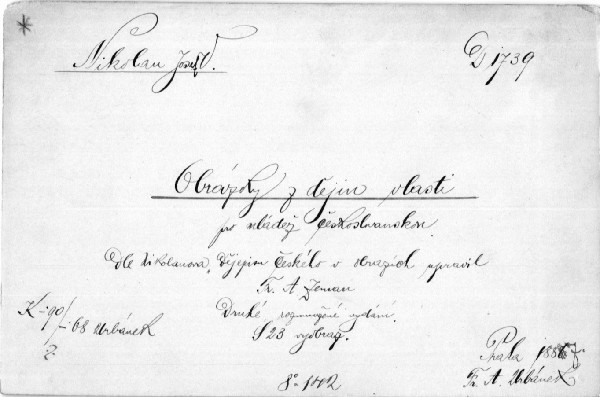 Nikolau Josef V.
D 1739
Obrázky z dějin vlasti
pro mládež českoslovanskou.
Dle Nikolauova „Dějepisu Českého v obrazích upravil
Fr. A. Zeman
Druhé rozmnožené vydání.
S 23 vyobraz.
K-90/
-68 Urbánek
Praha
Fr. A. Urbánek
8° 142